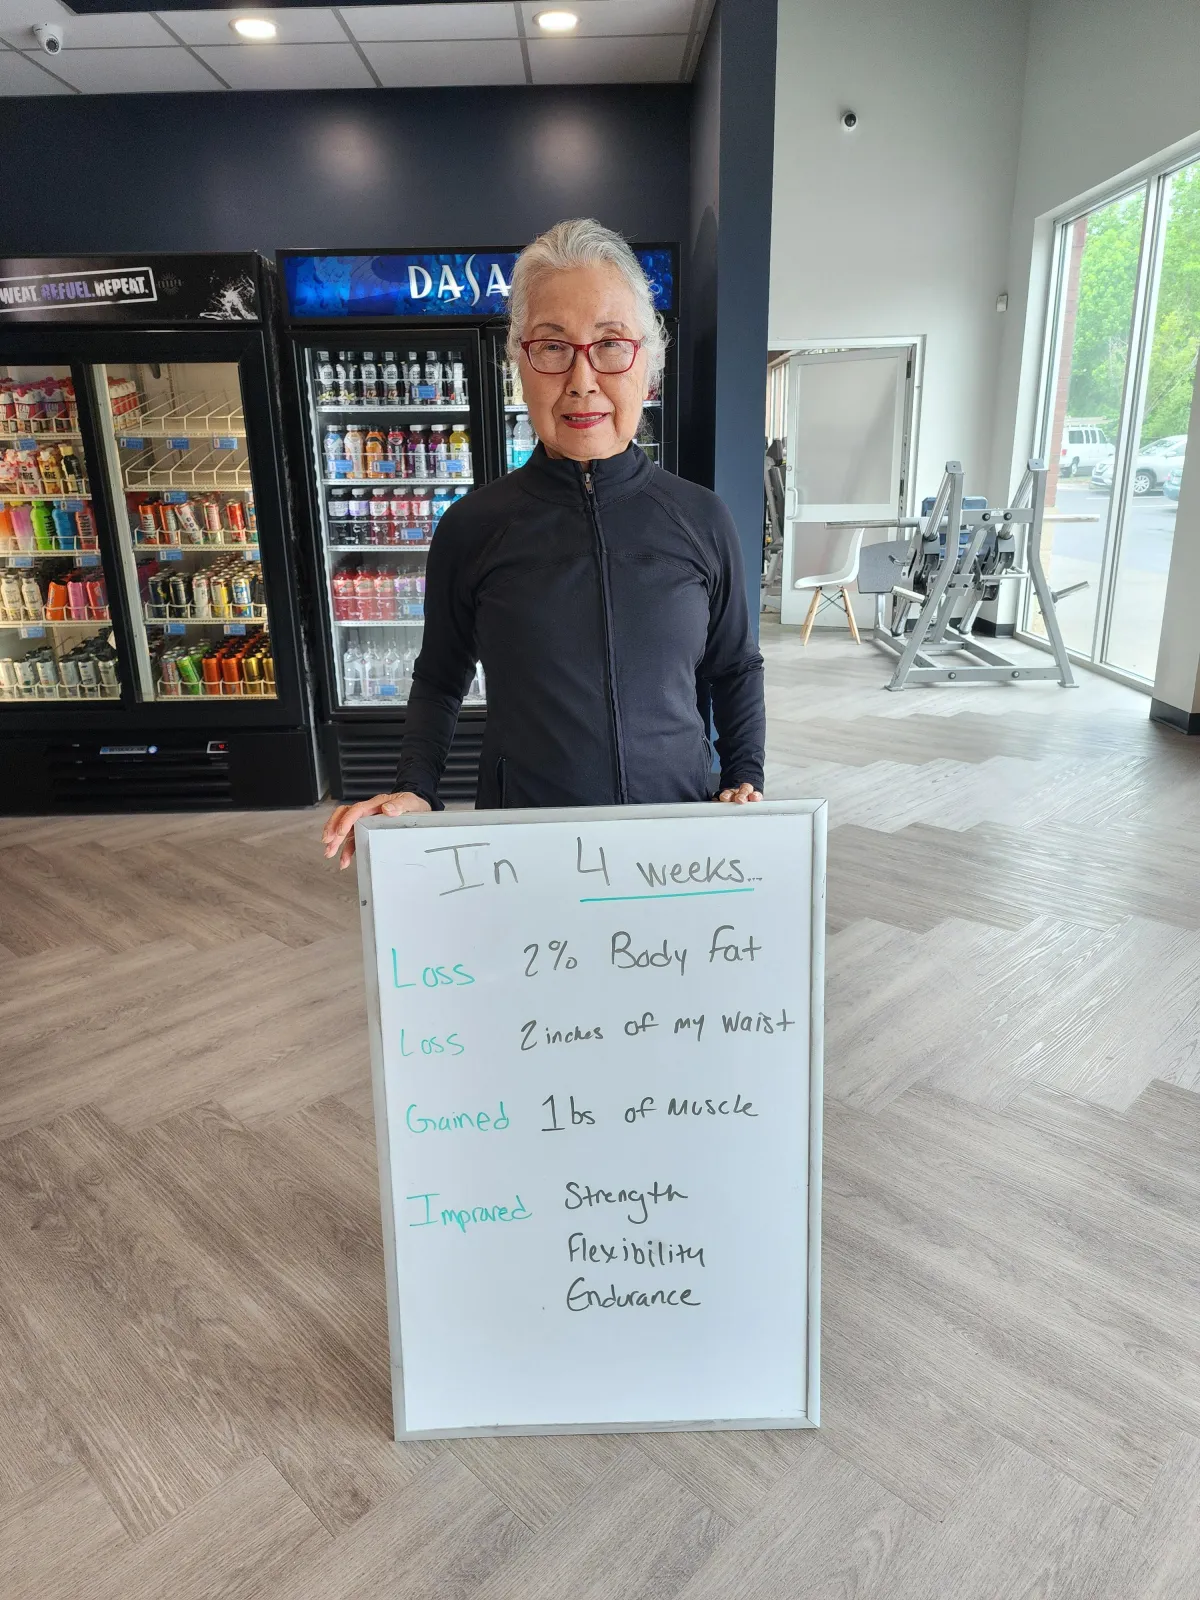 WEAT.REFUEL.REPEAT.
DASA
In 4 weeks...
Loss 2% Body Fat
Loss 2 inches of my waist
Gained 1 lbs of Muscle
Improved Strength
Flexibility
Endurance